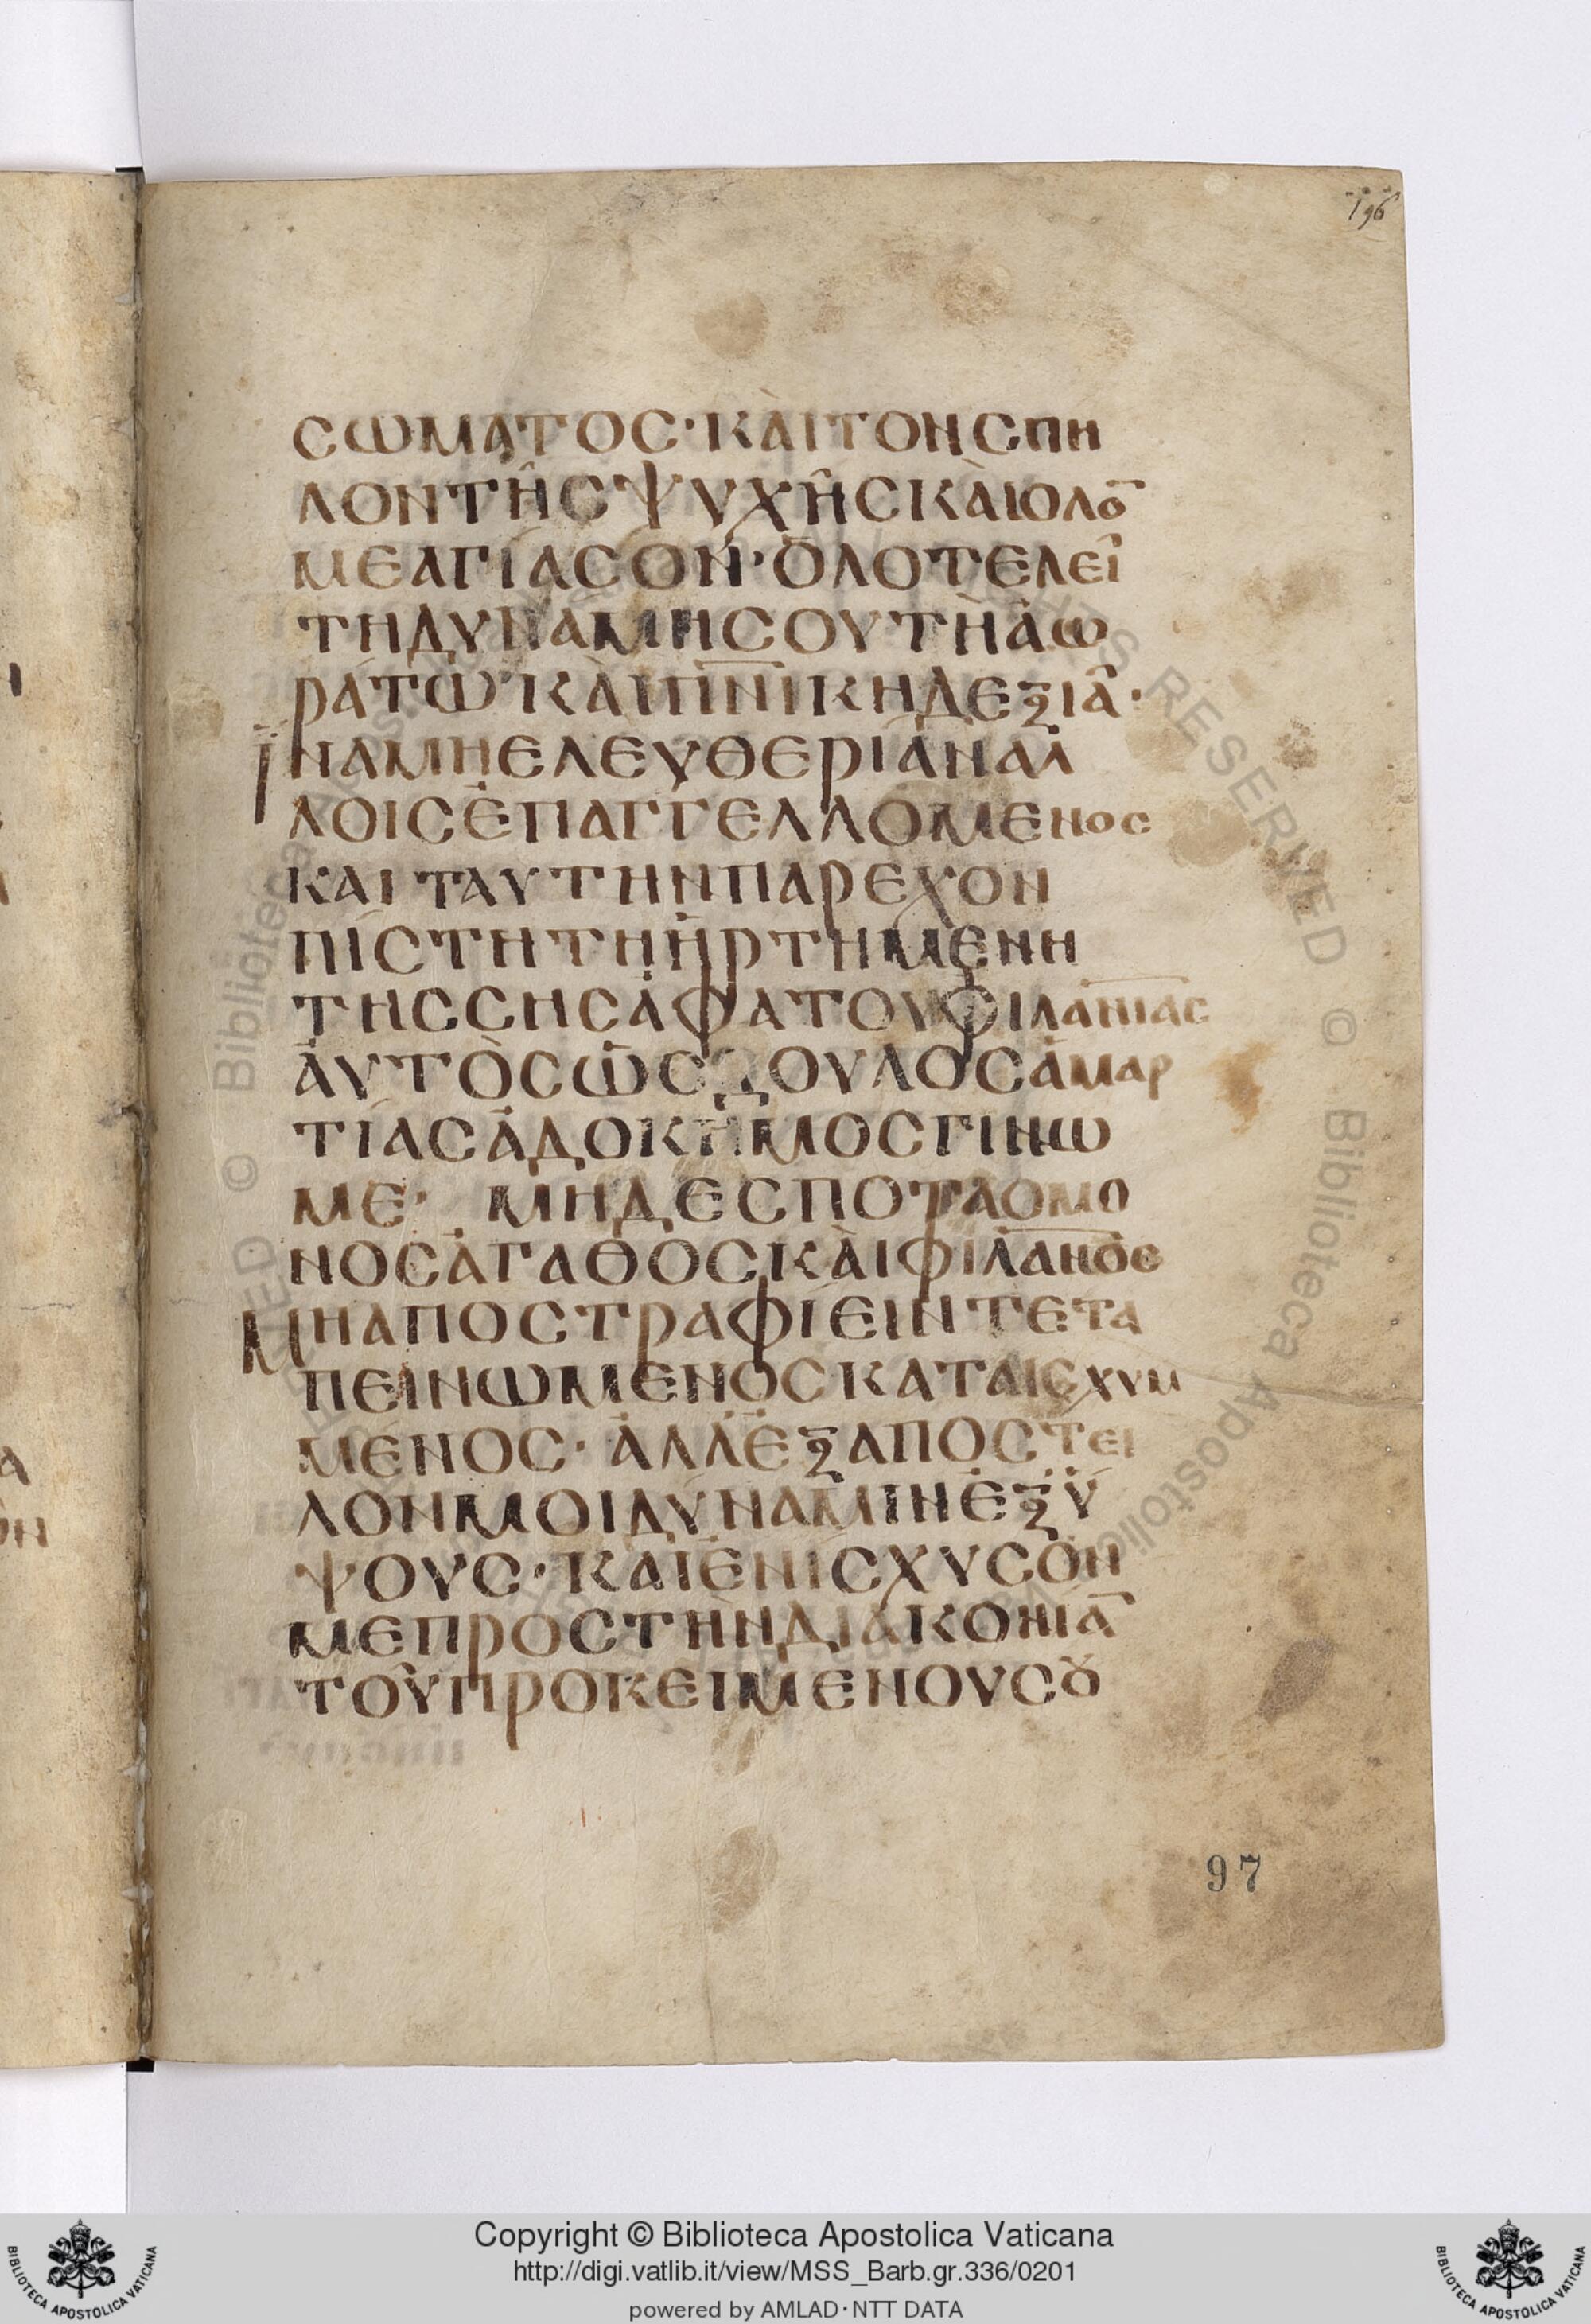 196
σωματος· κὰι τον σπη
λον τῆς ψυχῆς κὰι ολο̅
με αγίασον· ὁλοτελεῖ
τη δυναμη σου τῆ ἀω
ράτω κὰι π̅ν̅ι̅κη δεξιᾶ·
ἵνα μη ελευθερίαν αλ
λοις ἐπαγγελλομενος
και ταυτην παρεχον
πίστη τη ἠρτημενη
της σης ἀφατου φιλα̅ν̅ι̅ας
ἀυτὸς ὡς δουλος ἁμαρ
τίας ἀδοκήμος γινω
με· μη δεσποτα ο μο
νος ἀγαθὸς κὰι φιλα̅ν̅ο̅ς
Μη αποστραφίειν τετα
πεινωμενος καταισχυμ
μένος· ἀλλ̀ ἐξαποστει
λον μοι δύναμιν ἐξ ὕ
ψους· και ἐνισχυσον
με προς τὴν διακονία̅
τοῦ προκειμενου σȣ
97
Copyright © Biblioteca Apostolica Vaticana
http://digi.vatlib.it/view/MSS_Barb.gr.336/0201
powered by AMLAD·NTT DATA